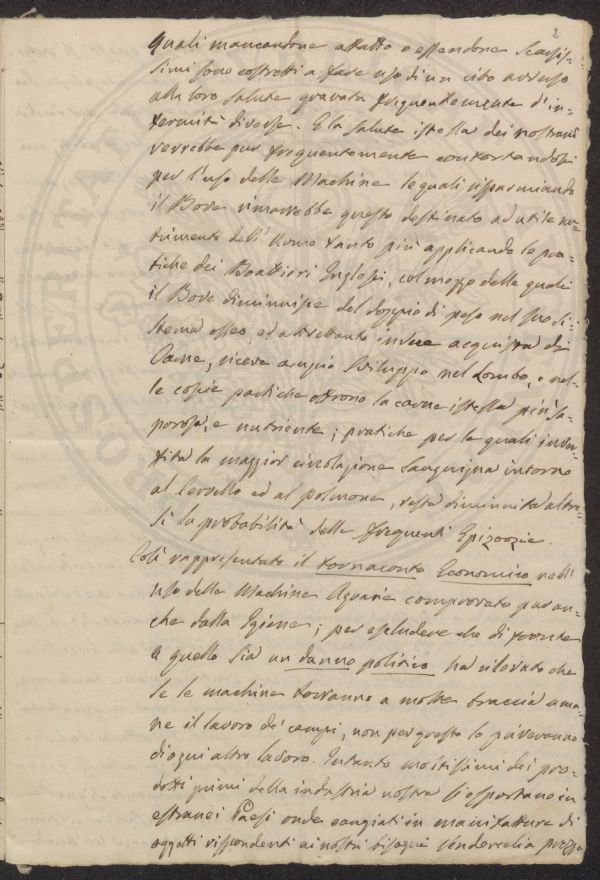 2
quali mancandone affatto o essendone scarsis-
simi sono costretti a fare uso di un cibo avverso
alla loro salute gravata frequentemente d'in-
fermità diverse. E la salute istessa dei nostrani
verrebbe pur frequentemente confortandosi
per l'uso delle Machine le quali risparmiando
il Bove rimarrebbe questo destinato ad utile nu-
trimento dell'Uomo tanto più applicando le pra-
tiche dei Boattieri Inglesi, col mezzo delle quali
il Bove diminuisce del doppio di peso nel suo si-
stema osseo, ed altrettanto invece acquista di
Carne, riceve ampio sviluppo nel Lombo, e nel-
le coscie pratiche offrono la carne istessa più sa-
porosa, e nutriente; pratiche per le quali inver-
tita la maggior circolazione sanguigna intorno
al Cervello ed al polmone, resta diminuita altre-
sì la probabilità delle frequenti Epizoozie.
Così rappresentato il tornaconto Economico nell'
uso delle Machine Agrarie comprovato pur an-
che dalla Igiene; per escludere che di fronte
a quello sia un danno politico ha rilevato che
se le machine torranno a molte braccia uma-
ne il lavoro de' campi, non per questo le priveranno
di ogni altro lavoro. Intanto moltissimi dei pro-
dotti primi della industria nostra si esportano in
estranei Paesi onde cangiati in manifatture di
oggetti rispondenti ai nostri bisogni vendercelia prezzo